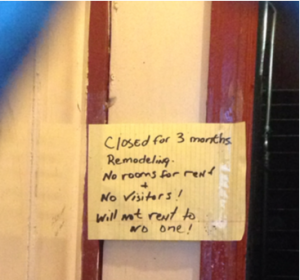 Closed for 3 months
Remodeling.
No rooms for rent
+
No visitors!
Will not rent to
no one!